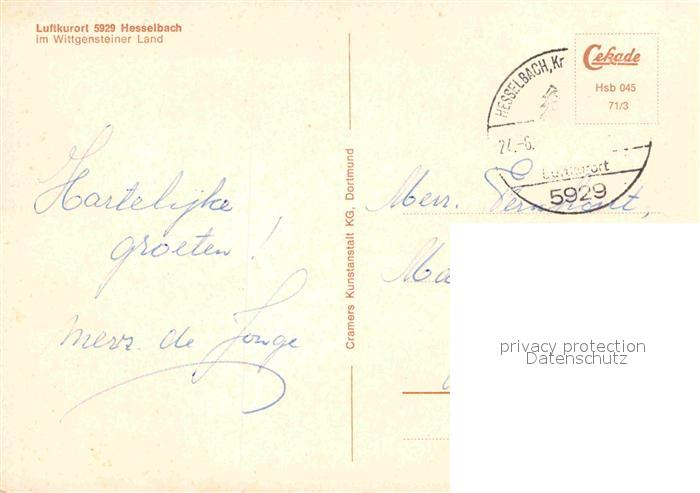 Luftkurort 5929 Hesselbach
im Wittgensteiner Land
Cekade
Hsb 045
71/3
HESSELBACH, Kr
27.-6.
Luftkurort
5929
Hartelijke
groeten!
Mevr. de Jonge
Cramers Kunstanstalt KG, Dortmund
Mevr.
Ma
privacy protection
Datenschutz